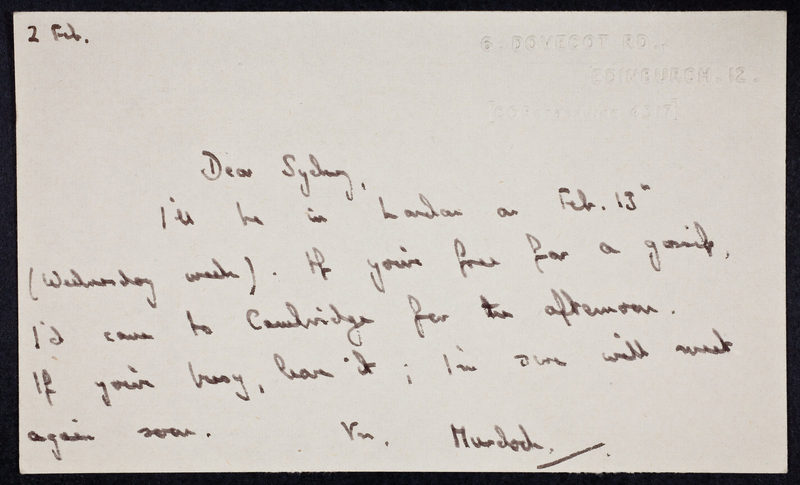 2 Feb.
6. DOVECOT RD.,
EDINBURGH. 12.
Dear Sydney,
I'll be in London on Feb. 13th
(Wednesday week). If you're free for a gossip,
I'd come to Cambridge for the afternoon.
If you're busy, leave it; I'm sure we'll meet
again soon. Yrs. Murdoch.